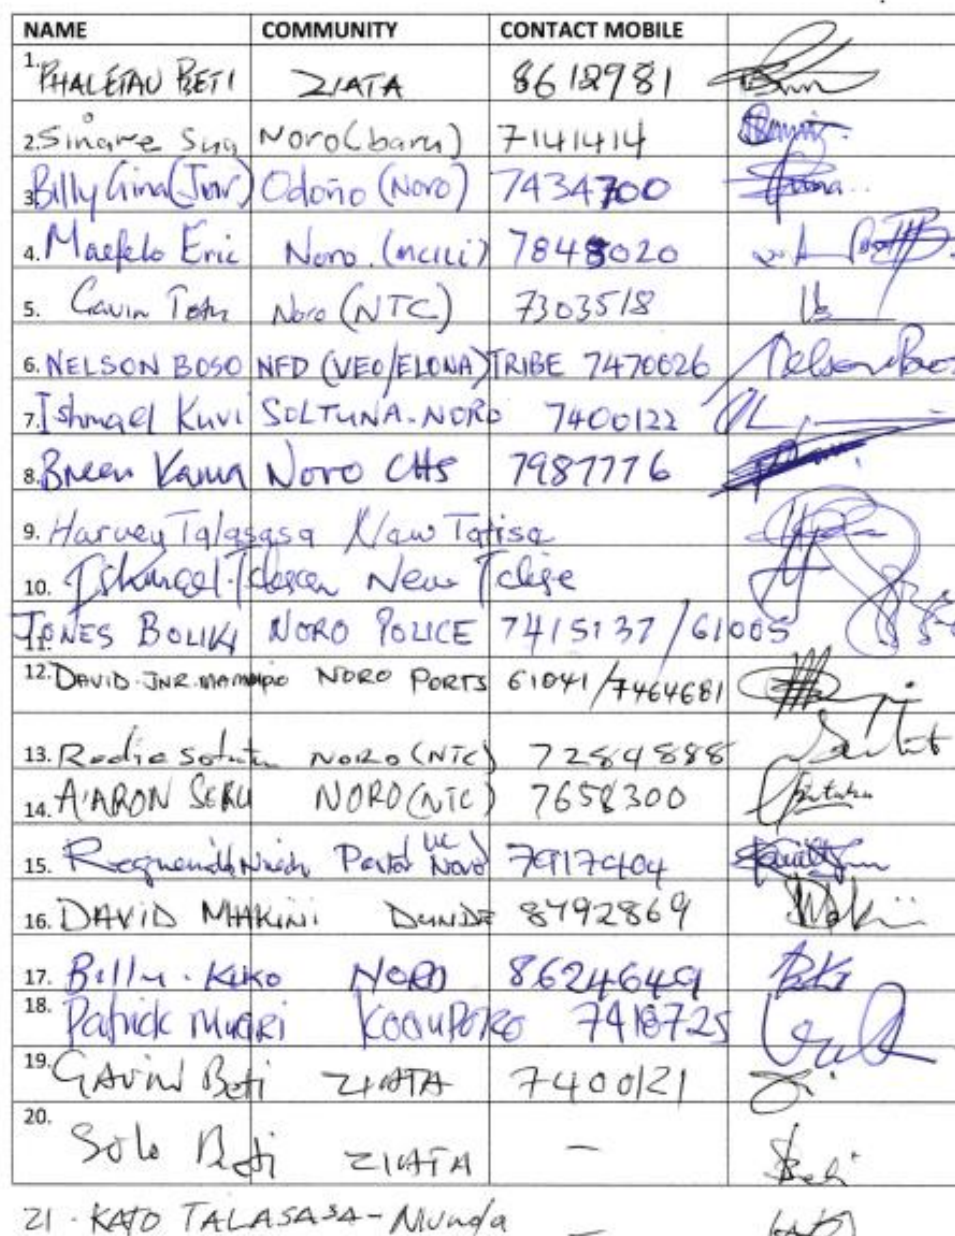 NAME COMMUNITY CONTACT MOBILE
1. PHALETAU BETI ZIATA 8612981
2. Sinare Sua Noro (baru) 7141414
3. Billy Gina (Jnr) Odono (Noro) 7434700
4. Maefelo Eric Noro 7848020
5. Gavin Noro (NTC) 7303518
6. NELSON BOSO NFD (VEO/ELONA) TRIBE 7470026
7. Ishmael Kuvi SOLTUNA-NORO 7400122
8. Breen Kama Noro CHS 7987776
9. Harvey Talasasa New Talise
10. New Talise
11. JONES BOLIKI NORO POLICE 7415137 / 61005
12. DAVID JNR. NORO PORTS 61041 / 7464681
13. NORO (NTC) 7284888
14. AARON SERU NORO (NTC) 7658300
15. Pastor UC Noro 7917404
16. DAVID MAKINI DUNDE 8792869
17. Billy. KIKO NORO 8624649
18. Patrick 7418725
19. GAVIN Beti ZIATA 7400121
20. Solo Beti ZIATA –
21. KATO TALASASA - Munda –